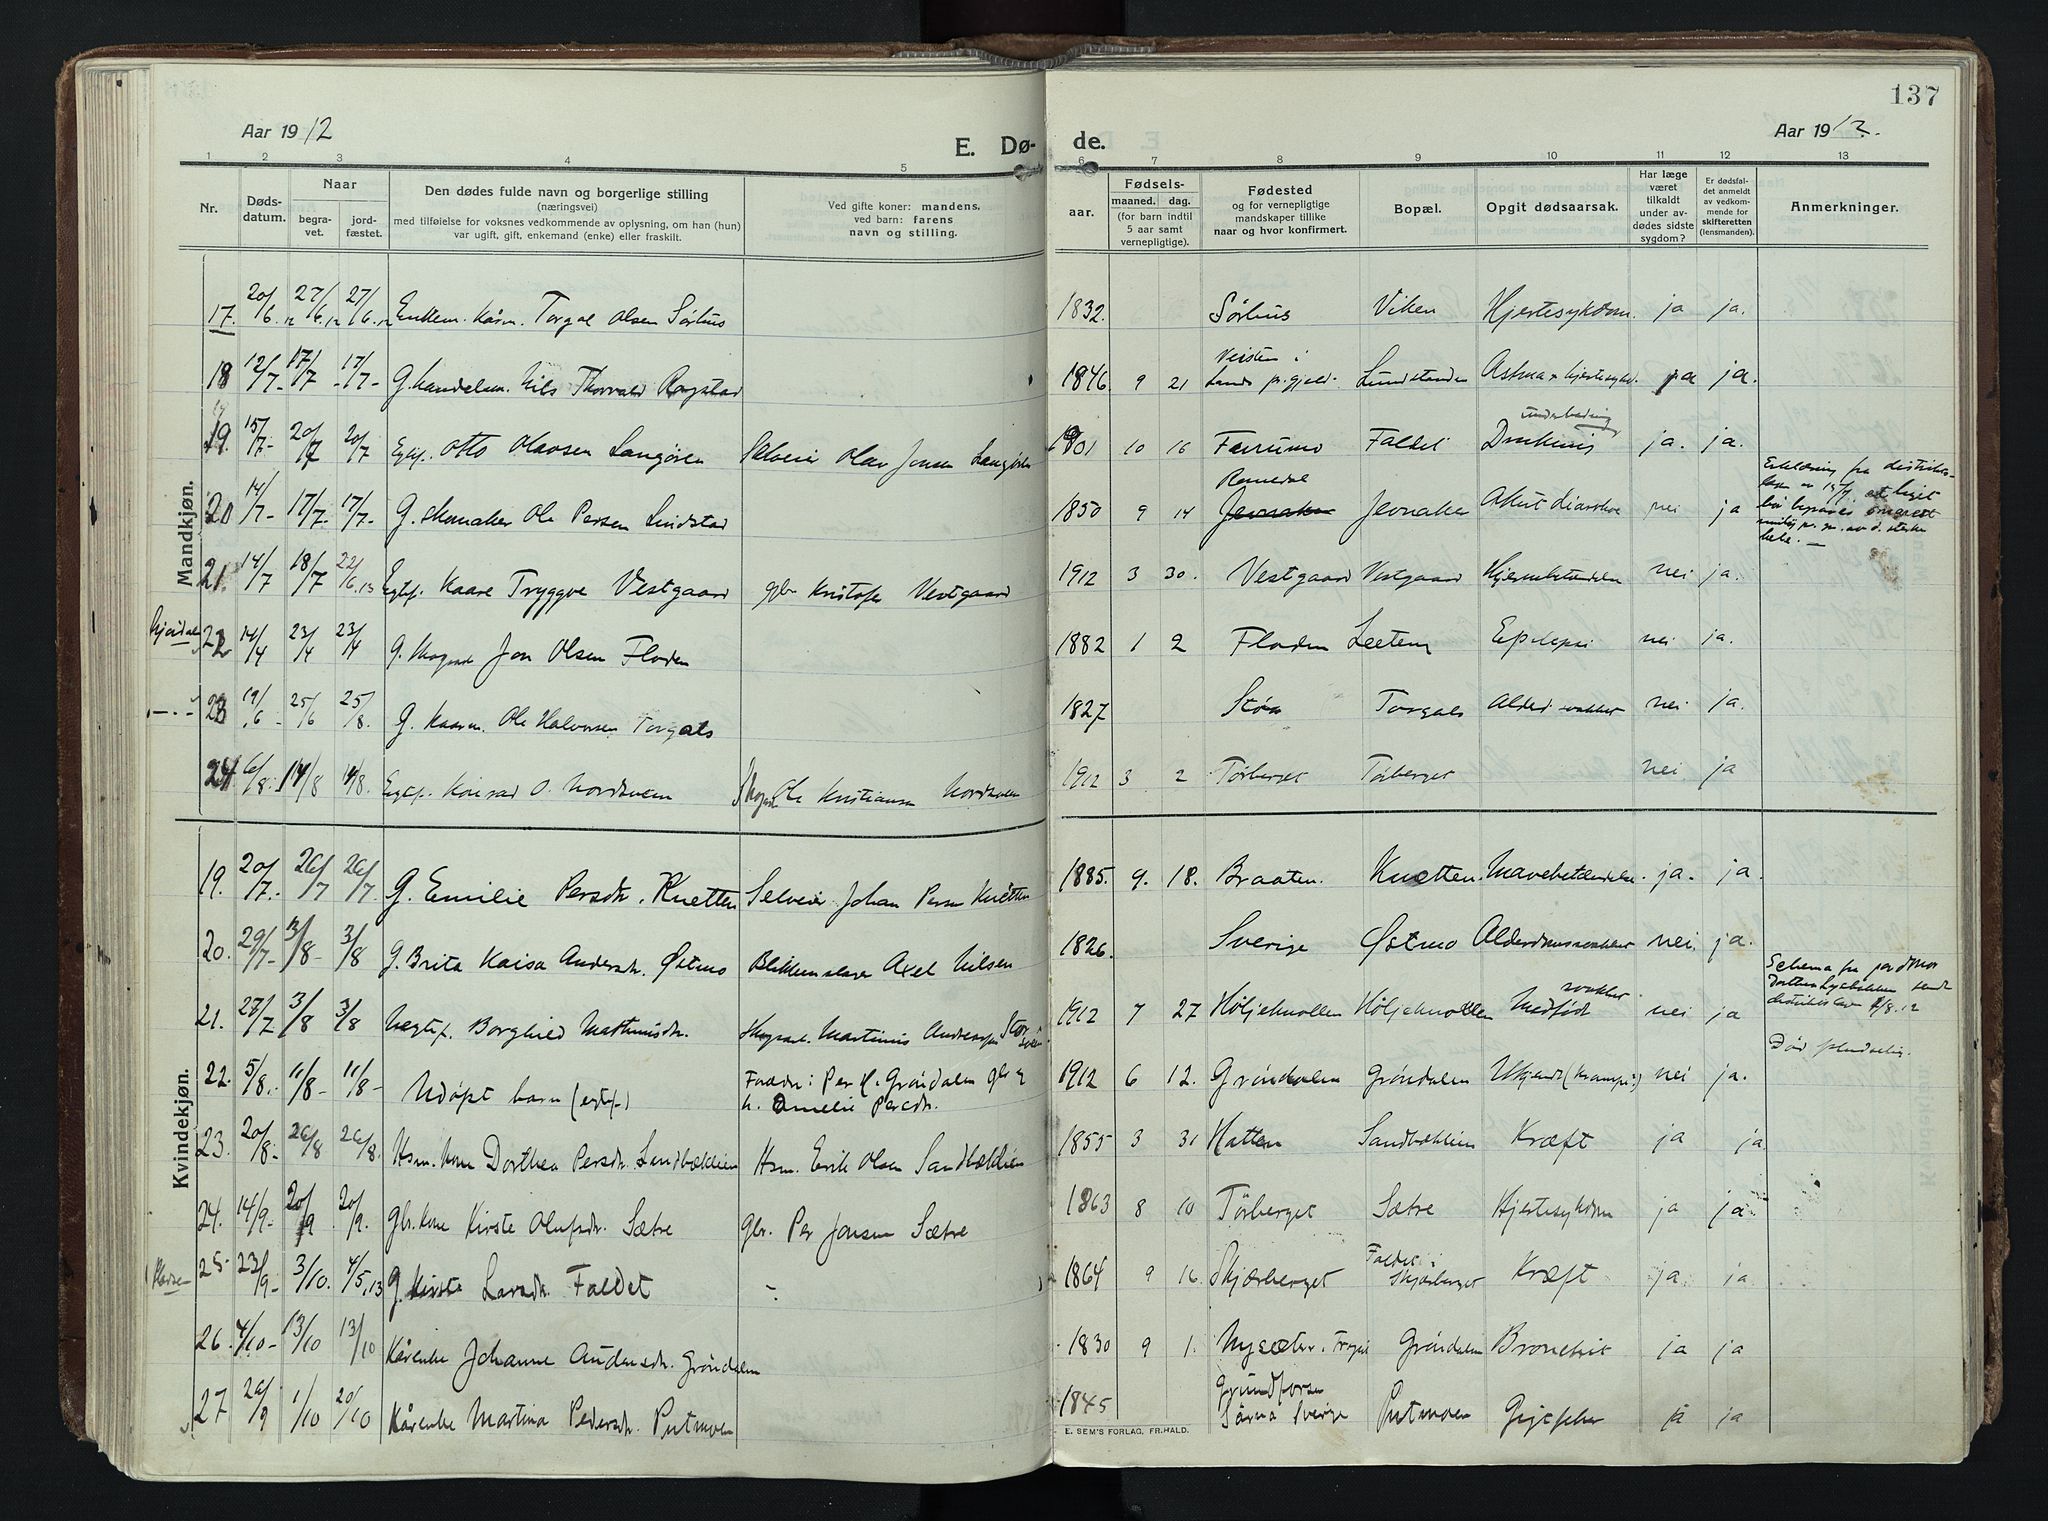 137
Aar 1912
E. Dø-
de.
Aar 1912.
1 2 3 4 5 6 7 8 9 10 11 12 13
Nr.
Døds-
datum.
Naar
begra-
vet.
jord-
fæstet.
Den dødes fulde navn og borgerlige stilling
(næringsvei)
med tilføielse for voksnes vedkommende av oplysning, om han (hun)
var ugift, gift, enkemand (enke) eller fraskilt.
Ved gifte koner: mandens,
ved barn: farens
navn og stilling.
Fødsels-
aar. maaned. dag.
(for barn indtil
5 aar samt
vernepligtige).
Fødested
og for vernepligtige
mandskaper tillike
naar og hvor konfirmert.
Bopæl.
Opgit dødsaarsak.
Har læge
været
tilkaldt
under av-
dødes sidste
sygdom?
Er dødsfal-
det anmeldt
av vedkom-
mende for
skifteretten
(lensmanden).
Anmerkninger.
Mandkjøn.
17. 20/6.12 27/6.12 27/6.12 Enkem. kårm. Torgal Olsen Sørhus 1832. Sørhus Viken Hjertesykdom. ja ja.
18 12/7- 17/7 17/7- G. Handelsm. Nils Thorvald Rogstad 1846. 9 21 Lands pr.gjeld. Lundstaden Astma + hjertesykd. ja ja.
19. 15/7- 20/7 20/7 Egtef. Otto Olavsen Langøren Selveier Olav Jonsen Langøren 1901 10 16 Faldet ja. ja.
20 14/7- 17/7- 17/7- G. skomaker Ole Persen Lindstad 1850 9 14 Romedal Jevnaker Jevnaker Akut diarrhoe nei ja
21. 14/7 18/7 22/6.13 Egtef. Kaare Tryggve Vestgaard gbr Kristofer Vestgaard 1912 3 30. Vestgaard Vestgaard nei ja.
22 14/4 23/4 23/4 G. Skogsarb Jon Olsen Floden 1882 1 2 Floden Leeteng Epilepsi nei ja.
23 19/6 - 25/6 25/8. G. Kaarm. Ole Halvorsen Torgals 1827 Støa Torgals nei ja.
24. 6/8. 14/8 14/8. Egtef. Konrad O. Nordhveem Skogsarb Ole Kristiansen Nordhveem 1912 3 2 Tørberget Tørberget nei ja
Kvindekjøn.
19. 20/7. 26/7 26/7 G. Emilie Persdtr. Knetten Selveier Johan Persen Knetten 1885. 9. 18. Braaten. Knetten. Mavebetændelse. ja. ja.
20. 29/7- 3/8- 3/8 G. Brita Kaisa Andersdtr. Østmo Blikkenslager Axel Nilsen 1826. Sverige Østmo Alderdomssvakhet nei ja.
21. 27/7 3/8 3/8 Uegtef. Borghild Martinusdtr. Skogsarb. Martinus Andreassen 1912 7 27 Høljeknollen Høljeknollen Medfødt svakhet. nei ja
22. 5/8. 11/8- 11/8- Udøpt barn (egtef.) Foræld: Per H. Grøndalen gbr og
h. Amelie Persdtr. 1912 6 12. Grøndalen Grøndalen Ukjendt (krampe?) nei ja. Død pludselig.
23. 20/8- 26/8 26/8. Hsm. kone Dorthea Persdtr. Sandbæklien Hsm. Erik Olsen Sandbæklien 1855 3 31 Hatten Sandbæklien Kræft ja ja
24. 14/9- 20/9 20/9. gbr. kone Kirste Olufsdtr. Sætre gbr. Per Jonsen Sætre 1863 8 10 Tørberget Sætre Hjertesykdom ja ja
25 23/9- 3/10. 4/5.13 G. Kirste Larsdtr. Faldet - 1864 9 16 Skjærberget Faldet i
Skjærberget Kræft ja. ja
26. 4/10- 13/10 13/10 Kårenke Johanne Andersdtr. Grøndalen 1830 9 1. Nysæter. Trysil Grøndalen Bronchit ja ja
27 26/9 1/10 20/10 Kårenke Martina Pedersdtr. Putmoen 1845 Grundforsen
Särna Sverige Putmoen ja ja
E. SEM'S FORLAG, FR.HALD.